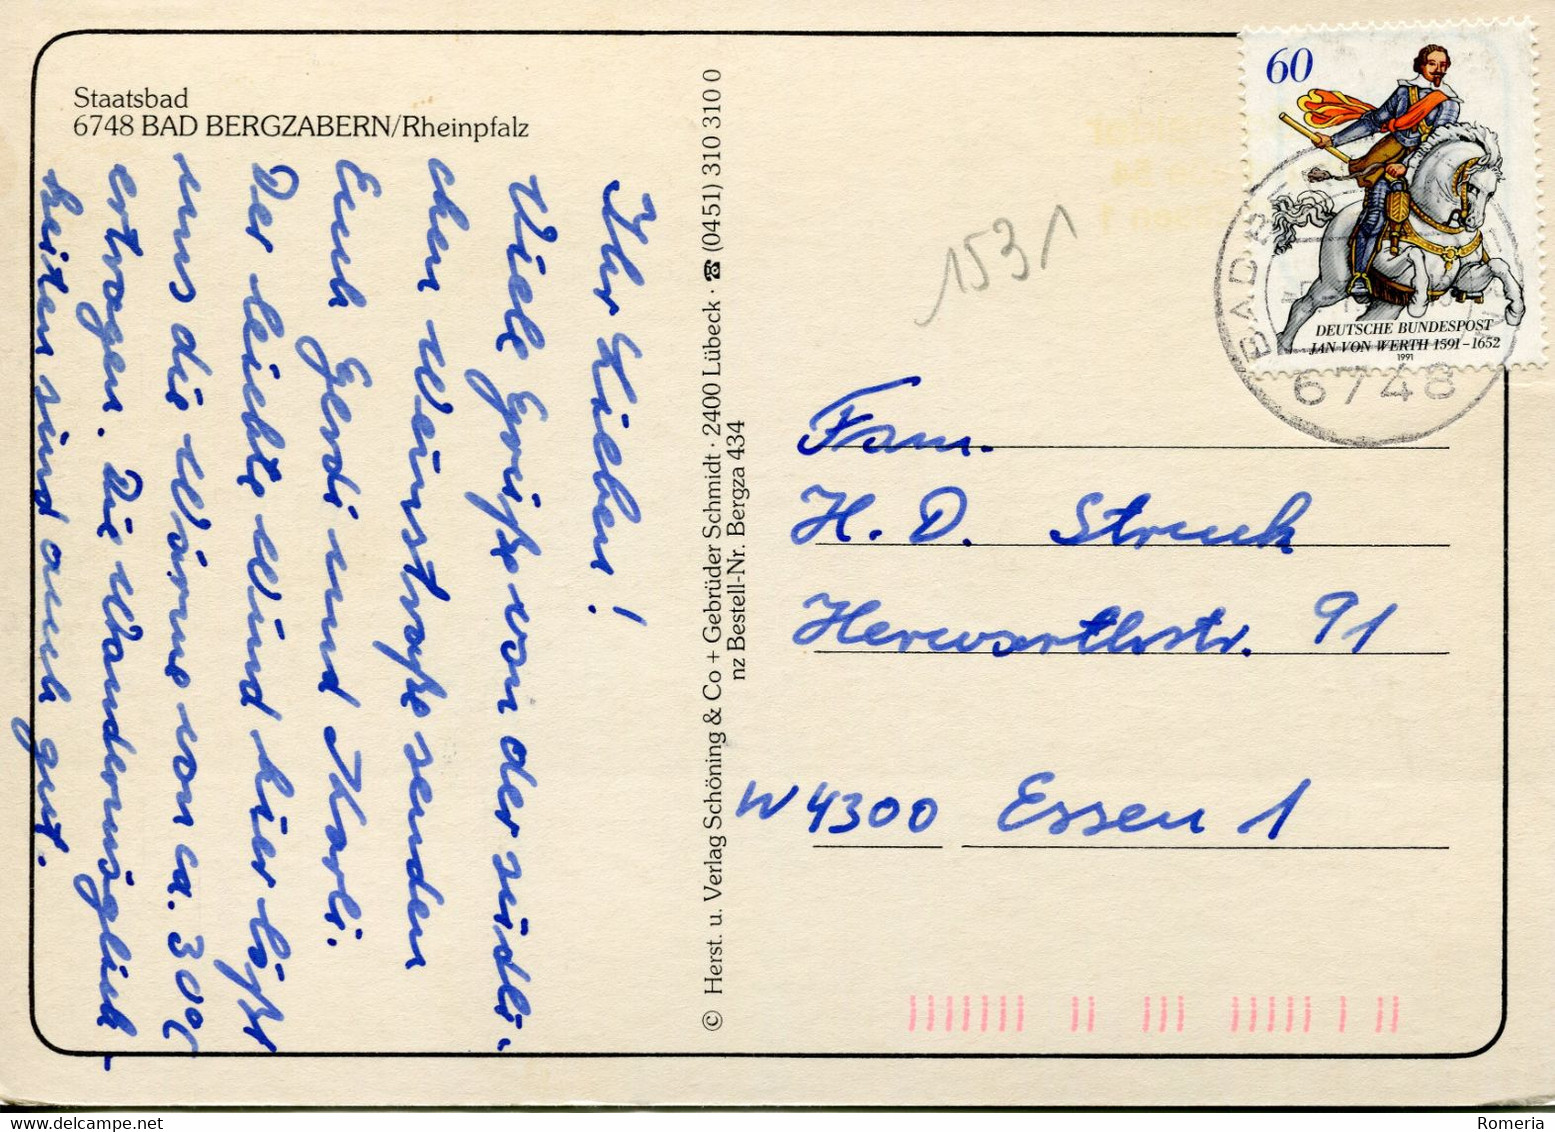 Staatsbad
6748 BAD BERGZABERN/Rheinpfalz
Ihr Lieben!
Viele Grüße von der südli-
chen Weinstraße senden
Euch Gerdi und Karli.
Der leichte Wind hier läßt
uns die Wärme von ca. 30°C
ertragen. Die Wandermöglich-
keiten sind auch gut.
© Herst. u. Verlag Schöning & Co + Gebrüder Schmidt · 2400 Lübeck · ☎ (0451) 310 310 0
nz Bestell-Nr. Bergza 434
60
DEUTSCHE BUNDESPOST
JAN VON WERTH 1591-1652
1991
BAD BE
6748
1531
Fam.
H. D. Struck
Herwarthstr. 91
W 4300 Essen 1
Romeria